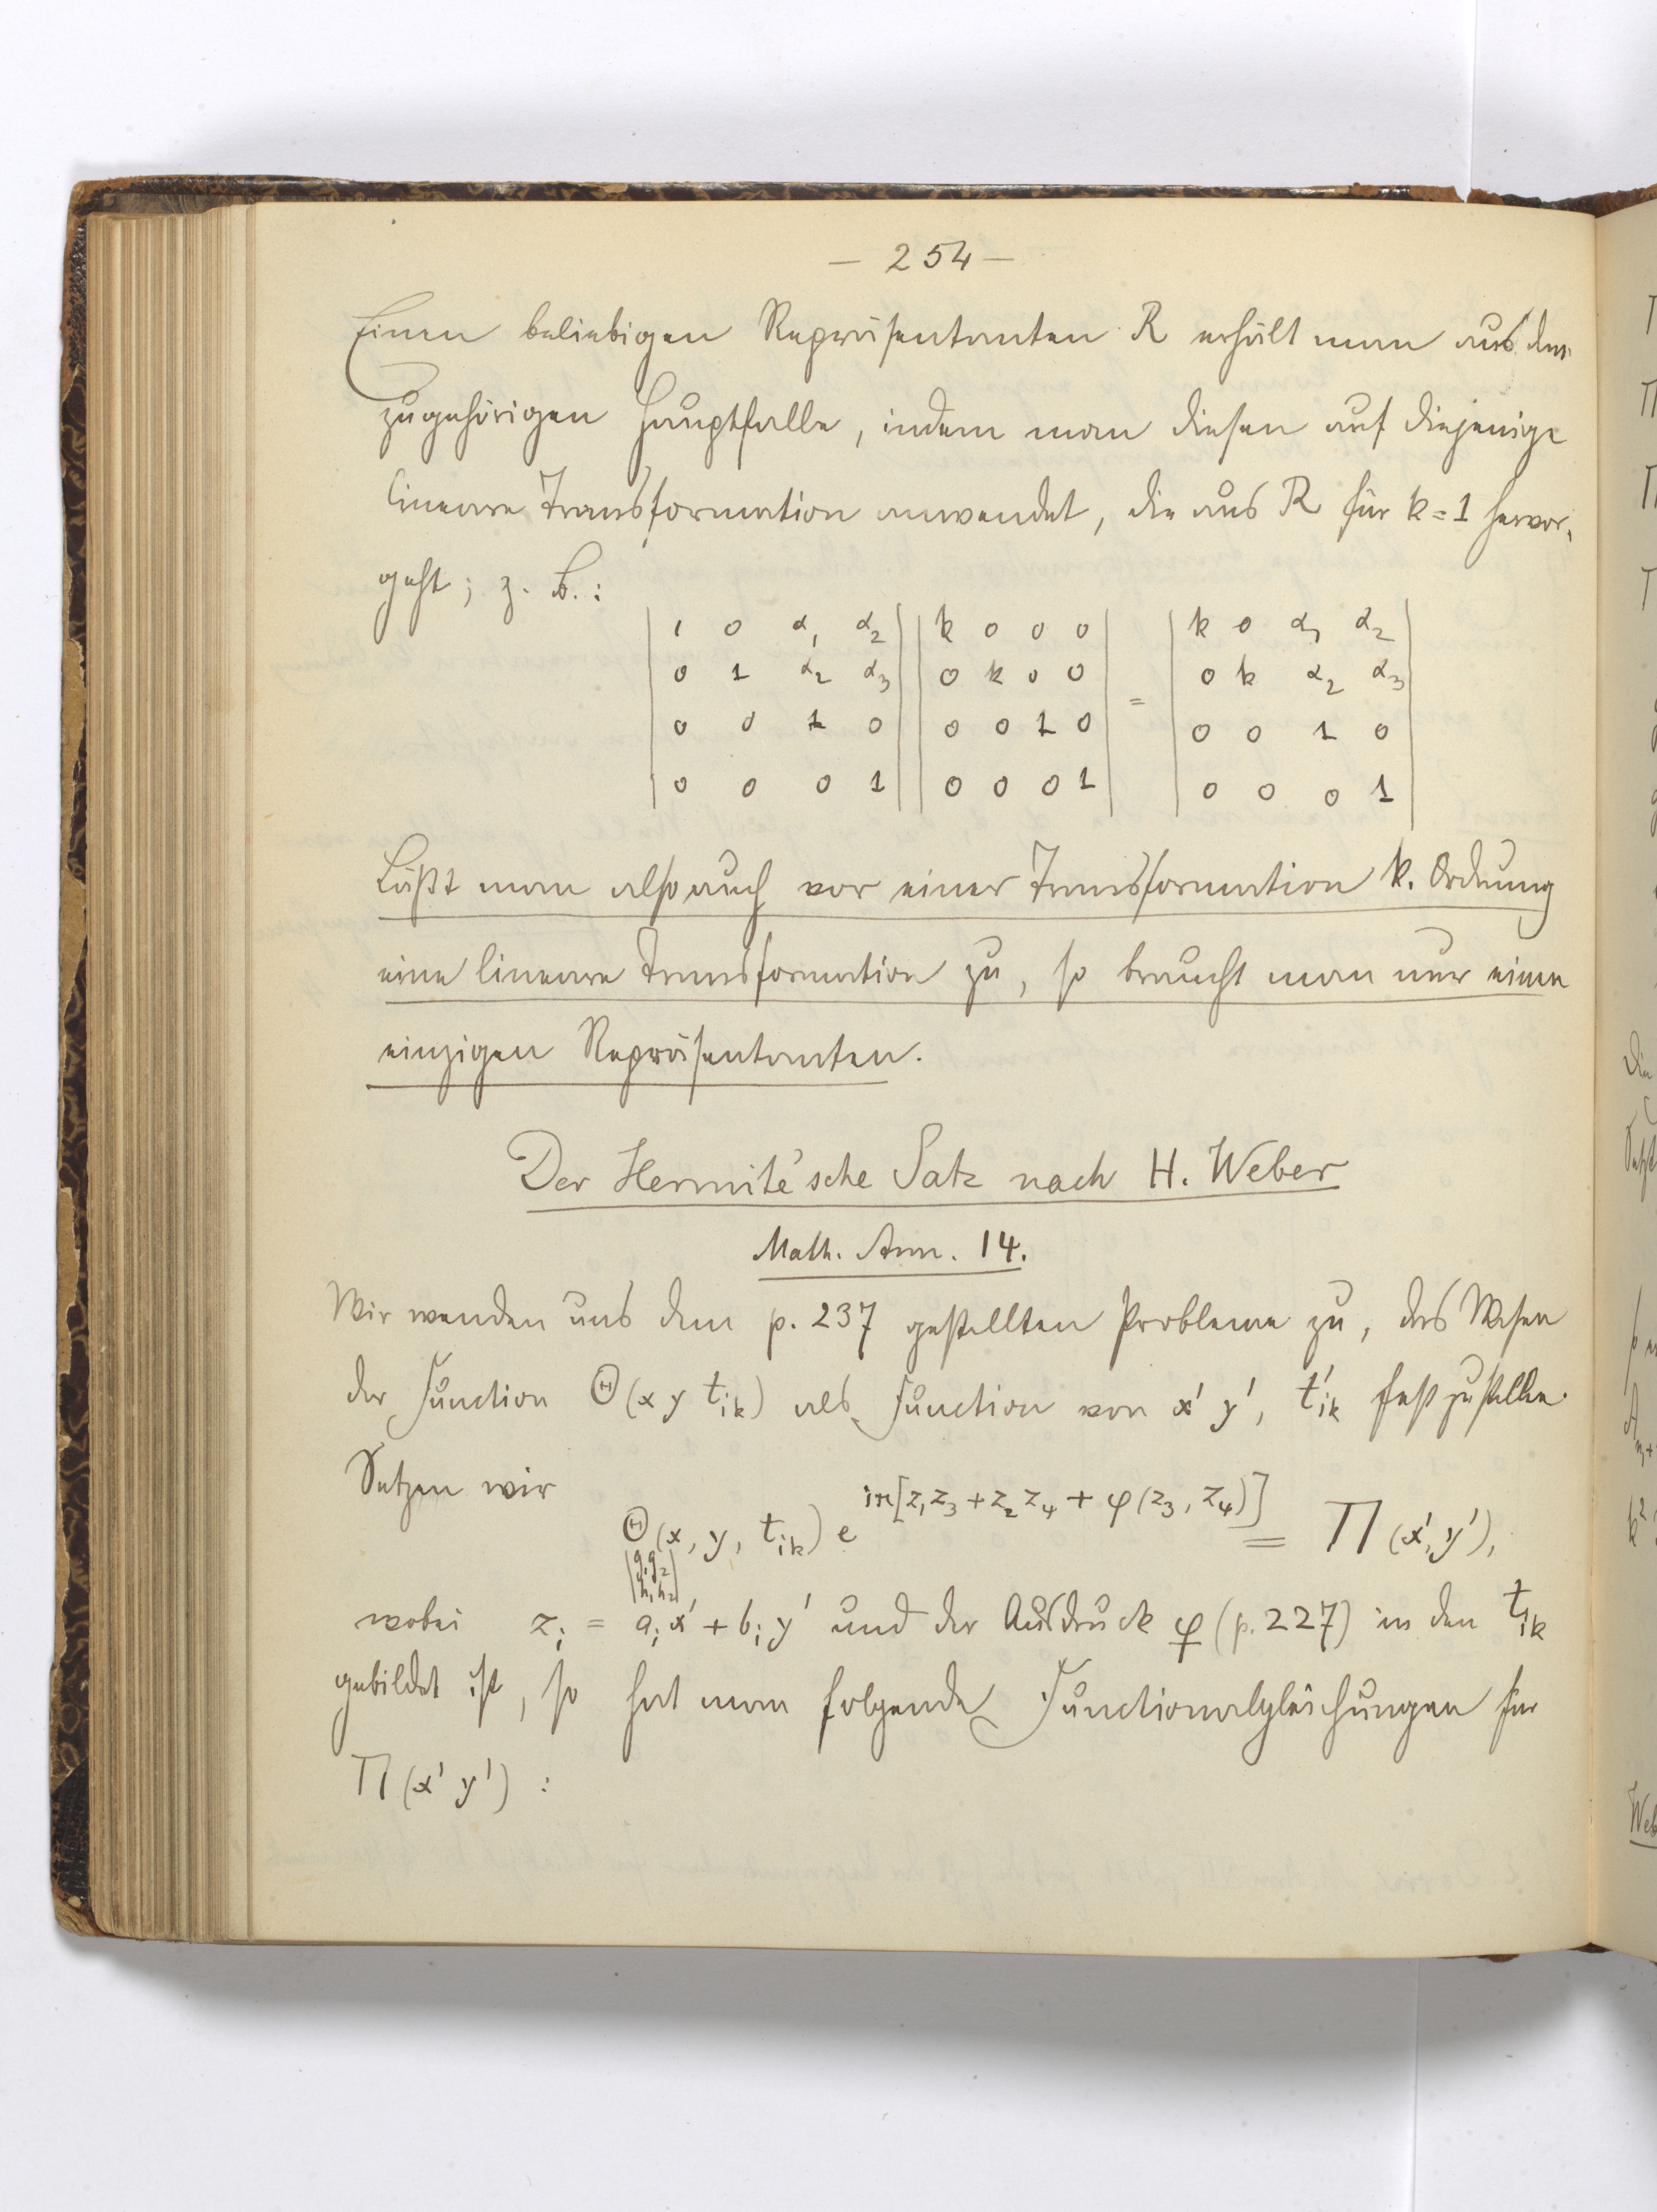 — 254 —
Einen beliebigen Repräsentanten R erhält man aus dem
zugehörigen Hauptfalle, indem man diesen auf diejenige
lineare Transformation anwendet, die aus R für k = 1 hervor-
geht; z. B.:
| 1 0 α₁ α₂ | | k 0 0 0 | | k 0 α₁ α₂ |
| 0 1 α₂ α₃ | | 0 k 0 0 | = | 0 k α₂ α₃ |
| 0 0 1 0 | | 0 0 1 0 | | 0 0 1 0 |
| 0 0 0 1 | | 0 0 0 1 | | 0 0 0 1 |
Läßt man also auch vor einer Transformation k. Ordnung
eine lineare Transformation zu, so braucht man nur einen
einzigen Repräsentanten.
Der Hermite'sche Satz nach H. Weber
Math. Ann. 14.
Wir wenden uns dem p. 237 gestellten Probleme zu, das Wesen
der Function Θ(x y t_{ik}) als Function von x' y', t'_{ik} festzustellen.
Setzen wir
Θ_{|g₁g₂ h₁h₂|}(x, y, t_{ik}) e^{iπ[z₁z₃ + z₂z₄ + φ(z₃, z₄)]} = Π(x', y'),
wobei z_i = a_i x' + b_i y' und der Ausdruck φ (p. 227) in den t_{ik}
gebildet ist, so hat man folgende Functionalgleichungen für
Π(x' y') :